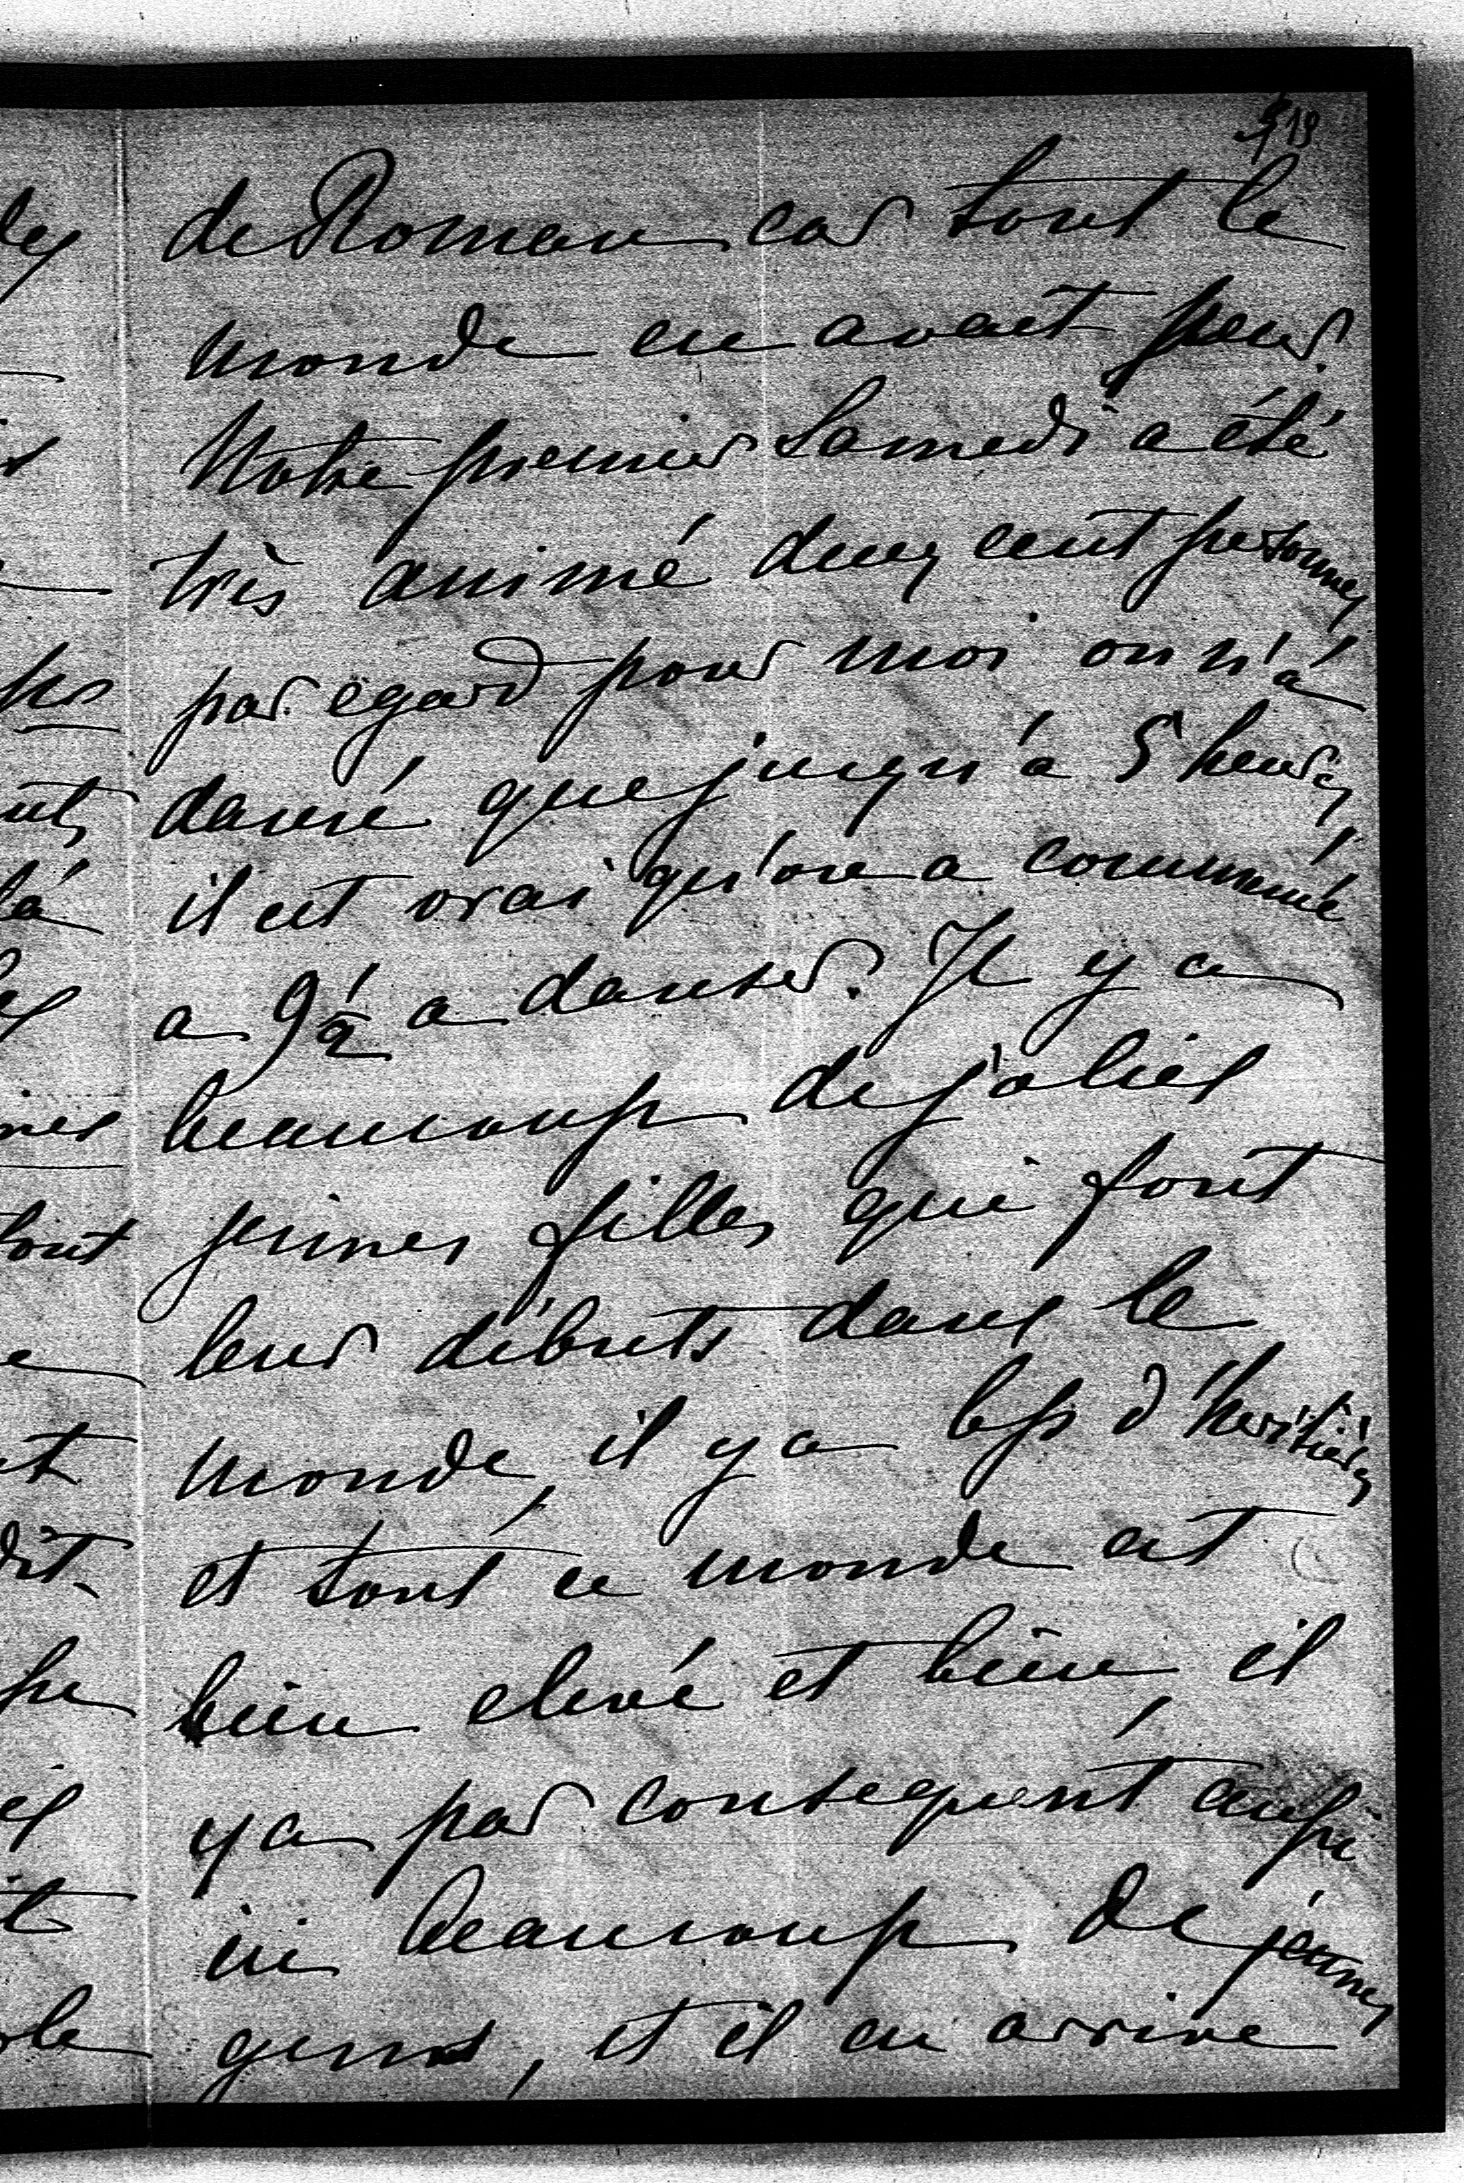 19
de Roman car tout le
monde en avait peur.
Notre premier Samedi a été
très animé deux cent personnes
par égard pour moi on n'a
dansé que jusqu'à 5 heures
il est vrai qu'on a commencé
a 9½ a danser. Il y a
beaucoup de jolies
jeunes filles qui font
leur débuts dans le
monde, il y a bps d'héritières
et tout ce monde est
bien elevé et bien, il
y a par consequent aussi
ici beaucoup de jeunes
gens, et il en arrive